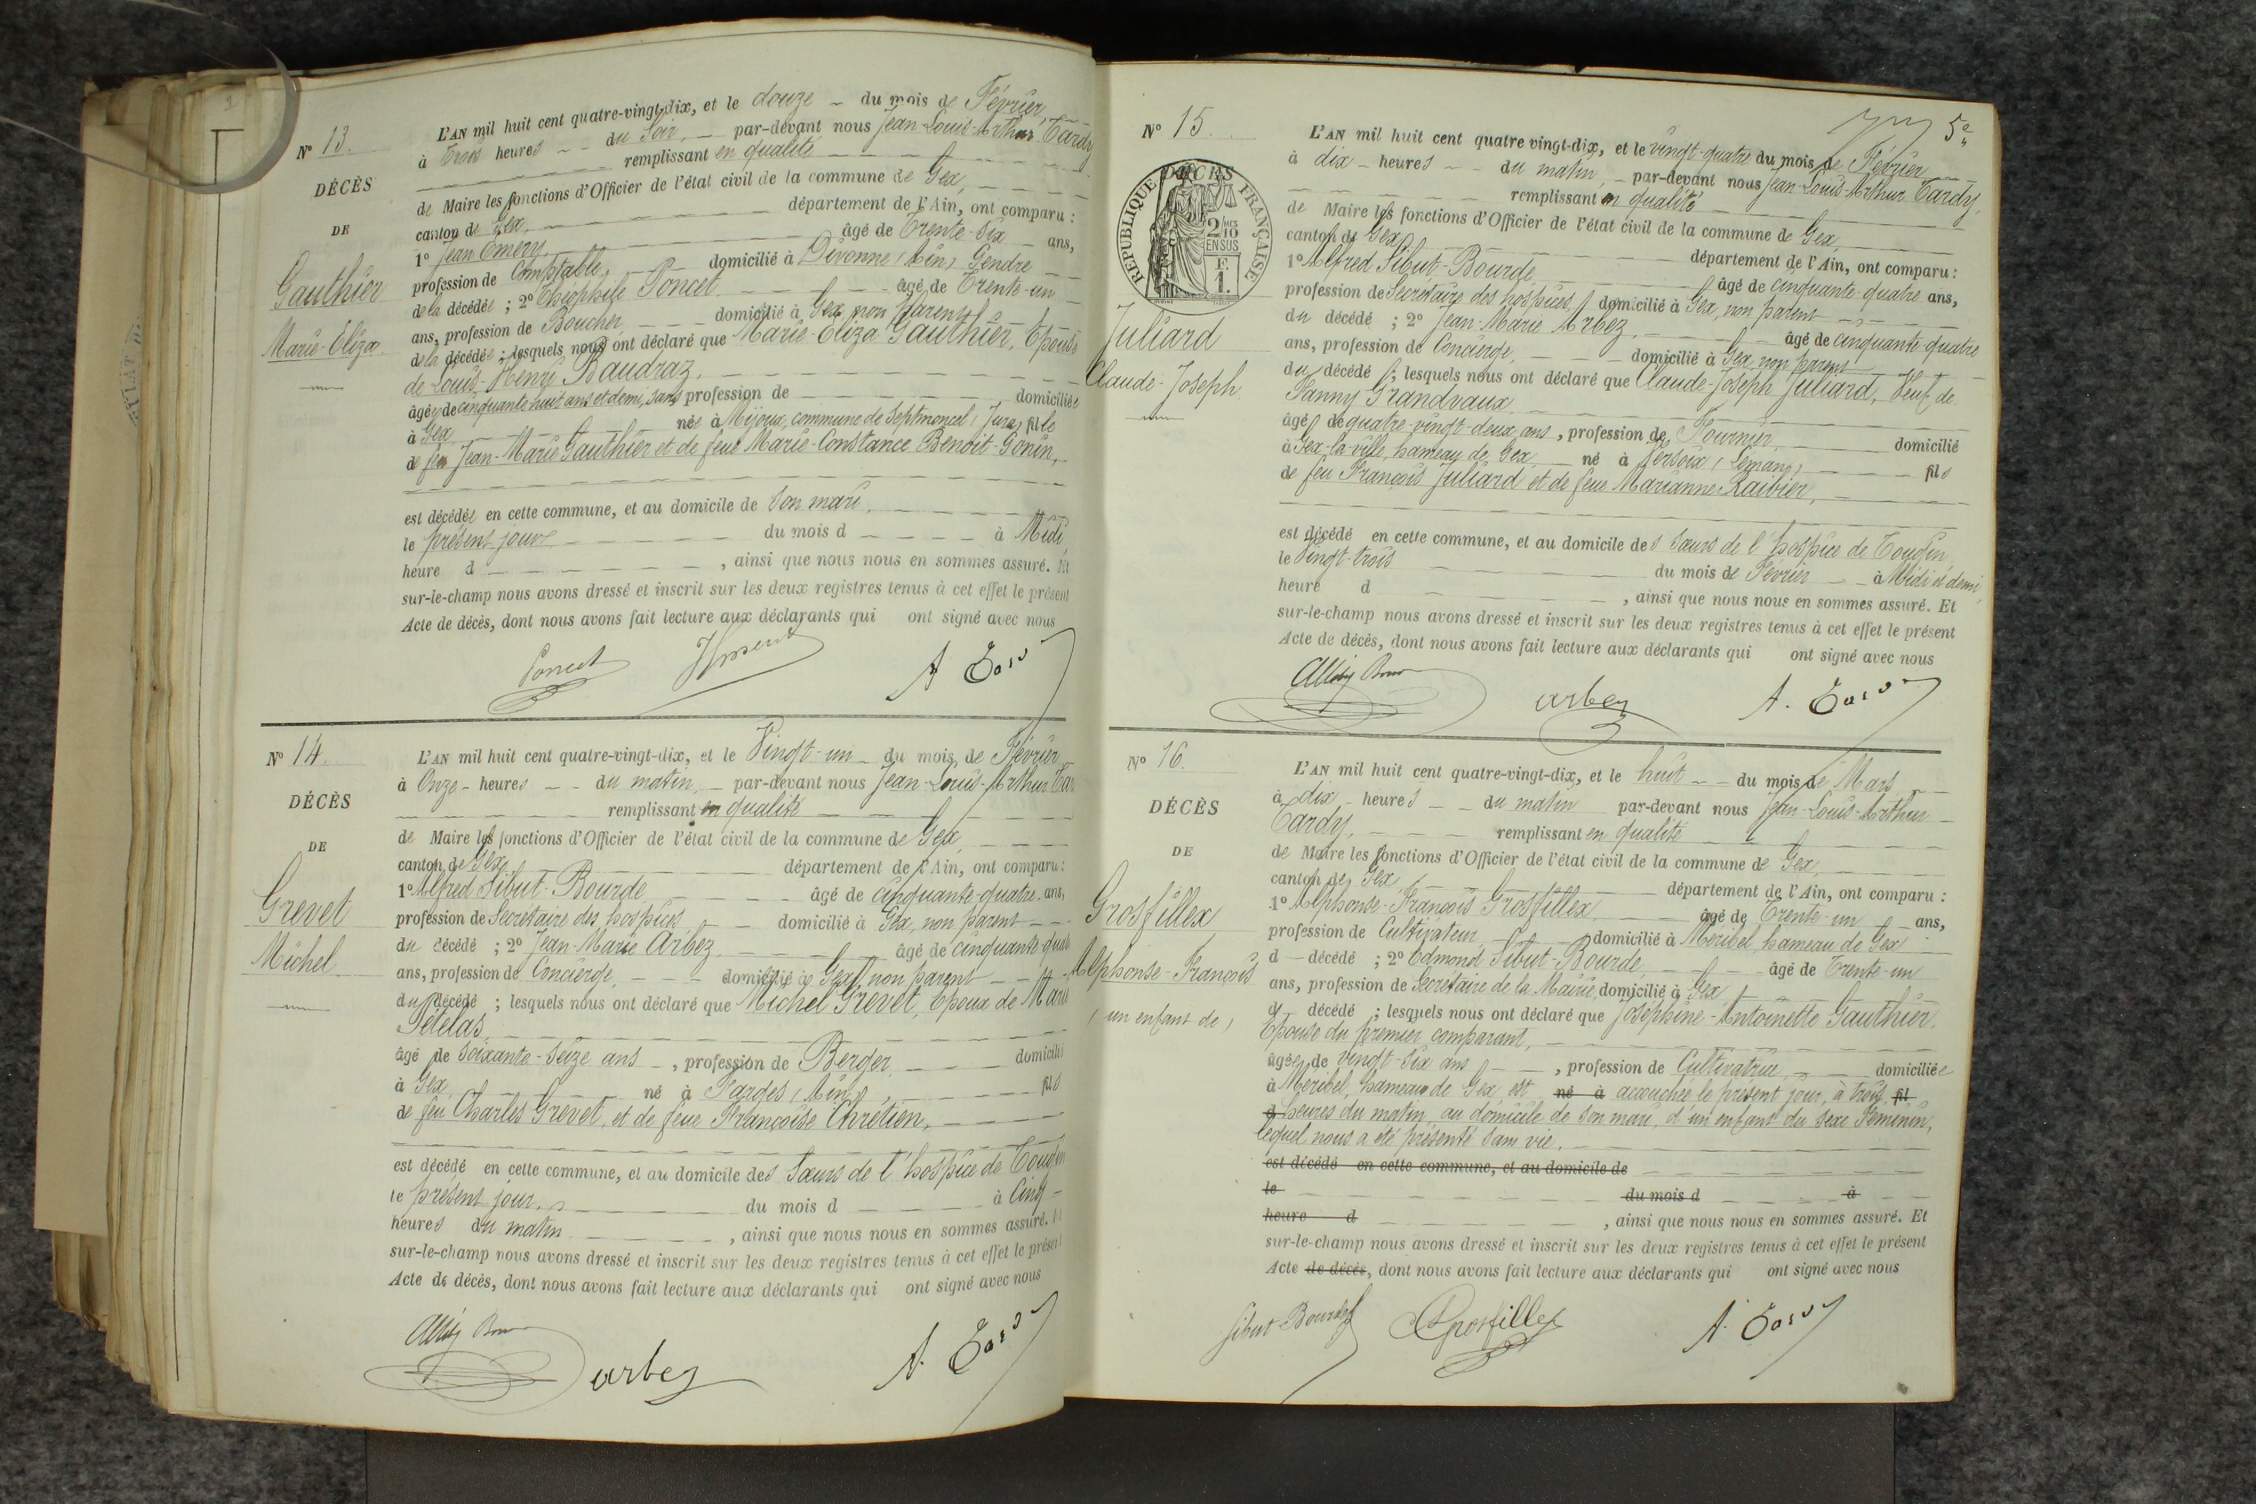 N° 13.
DÉCÈS
DE
Gauthier
Marie-Eliza.
L'AN mil huit cent quatre-vingt-dix, et le douze du mois de Février,
à Trois heures du Soir, par-devant nous Jean-Louis-Arthur Tardy
remplissant en qualité
de Maire les fonctions d'Officier de l'état civil de la commune de Gex,
canton de Gex, département de l'Ain, ont comparu :
1° Jean Emery, âgé de Trente-Six ans,
profession de Comptable, domicilié à Divonne (Ain) Gendre
de la décédée ; 2° Théophile Poncet âgé de Trente-un
ans, profession de Boucher, domicilié à Gex, non Parent
de la décédée ; lesquels nous ont déclaré que Marie-Eliza Gauthier, Epouse
de Louis-Henri Baudraz,
âgée de cinquante huit ans et demi, sans profession de domiciliée
à Gex, née à Mijoux, commune de Septmoncel (Jura) fille
de feu Jean-Marie Gauthier et de feue Marie-Constance Benoit-Gonin,
est décédée en cette commune, et au domicile de son mari,
le présent jour du mois d à Midi,
heure d , ainsi que nous nous en sommes assuré. Et
sur-le-champ nous avons dressé et inscrit sur les deux registres tenus à cet effet le présent
Acte de décès, dont nous avons fait lecture aux déclarants qui ont signé avec nous
Poncet
N° 14.
DÉCÈS
DE
Grevet
Michel
L'AN mil huit cent quatre-vingt-dix, et le Vingt-un du mois de Février
à Onze heures du matin, par-devant nous Jean-Louis-Arthur Tar
remplissant en qualité
de Maire les fonctions d'Officier de l'état civil de la commune de Gex,
canton de Gex, département de l'Ain, ont comparu :
1° Alfred Sibut-Bourde âgé de cinquante-quatre ans,
profession de Secrétaire des hospices domicilié à Gex, non parent
du décédé ; 2° Jean-Marie Arbez âgé de cinquante quat
ans, profession de Concierge, domicilié à Gex, non parent
du décédé ; lesquels nous ont déclaré que Michel Grevet, Epoux de Marie
Pételas
âgé de soixante-seize ans, profession de Berger, domicilié
à Gex, né à Farges (Ain), fils
de feu Charles Grevet, et de feue Françoise Chrétien,
est décédé en cette commune, et au domicile des Sœurs de l'hospice de Tougin
le présent jour, du mois d à Cinq
heures du matin , ainsi que nous nous en sommes assuré. Et
sur-le-champ nous avons dressé et inscrit sur les deux registres tenus à cet effet le présent
Acte de décès, dont nous avons fait lecture aux déclarants qui ont signé avec nous
arbez
5e
N° 15.
RÉPUBLIQUE FRANÇAISE
DÉCRS
2/10
EN SUS
F.
1.
Juliard
Claude-Joseph.
L'AN mil huit cent quatre vingt-dix, et le vingt-quatre du mois de Février
à dix heures du matin, par-devant nous Jean-Louis-Arthur Tardy,
remplissant en qualité
de Maire les fonctions d'Officier de l'état civil de la commune de Gex,
canton de Gex département de l'Ain, ont comparu :
1° Alfred Sibut-Bourde, âgé de cinquante-quatre ans,
profession de Secrétaire des hospices, domicilié à Gex, non parent
du décédé ; 2° Jean-Marie Arbez, âgé de cinquante-quatre
ans, profession de Concierge, domicilié à Gex, non parent
du décédé ; lesquels nous ont déclaré que Claude-Joseph Juliard, Veuf de
Fanny Grandvaux
âgé de quatre-vingt-deux ans, profession de Fournier domicilié
à Gex-la-ville, hameau de Gex, né à Versoix (Léman) fils
de feu François Juliard et de feue Marianne Raivier,
est décédé en cette commune, et au domicile des Sœurs de l'hospice de Tougin,
le Vingt-trois du mois de Février à Midi et demi,
heure d , ainsi que nous nous en sommes assuré. Et
sur-le-champ nous avons dressé et inscrit sur les deux registres tenus à cet effet le présent
Acte de décès, dont nous avons fait lecture aux déclarants qui ont signé avec nous
arbez
N° 16.
DÉCÈS
DE
Grosfillex
Alphonse-François
(un enfant de)
L'AN mil huit cent quatre-vingt-dix, et le huit du mois de Mars
à dix heures du matin par-devant nous Jean-Louis-Arthur
Tardy, remplissant en qualité
de Maire les fonctions d'Officier de l'état civil de la commune de Gex,
canton de Gex, département de l'Ain, ont comparu :
1° Alphonse-François Grosfillex âgé de Trente-un ans,
profession de Cultivateur, domicilié à Méribel, hameau de Gex
d décédé ; 2° Edmond Sibut-Bourde, âgé de Trente-un
ans, profession de Secrétaire de la Mairie, domicilié à Gex
d décédé ; lesquels nous ont déclaré que Joséphine-Antoinette Gauthier,
Epouse du premier comparant,
âgée de vingt-six ans , profession de Cultivatrice domiciliée
à Méribel, hameau de Gex est né à accouchée le présent jour, à trois fil
d heures du matin au domicile de son mari, d'un enfant du sexe Féminin,
lequel nous a été présenté sans vie.
est décédé en cette commune, et au domicile de
le du mois d à
heure d , ainsi que nous nous en sommes assuré. Et
sur-le-champ nous avons dressé et inscrit sur les deux registres tenus à cet effet le présent
Acte de décès, dont nous avons fait lecture aux déclarants qui ont signé avec nous
Sibut Bourde Grosfillex